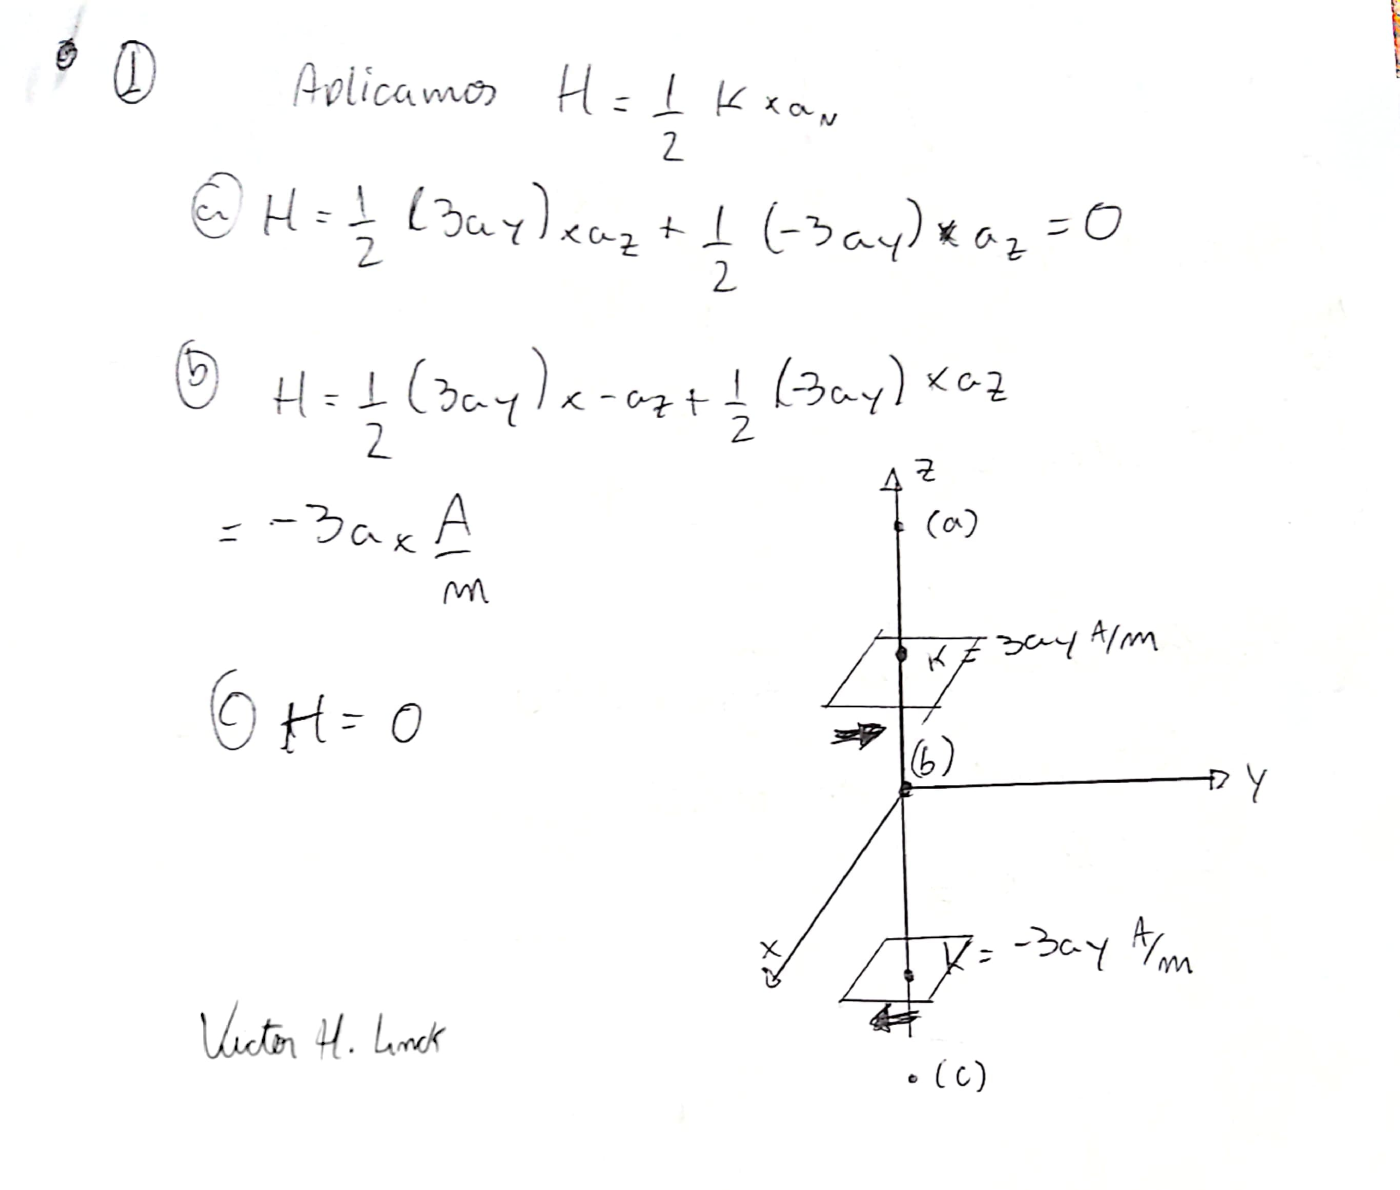 ① Aplicamos H = 1/2 K x a_N
ⓐ H = 1/2 (3ay) x az + 1/2 (-3ay) x az = 0
ⓑ H = 1/2 (3ay) x -az + 1/2 (-3ay) x az
= -3ax A/m
ⓒ H = 0
Z
(a)
K = 3ay A/m
(b)
Y
X
K = -3ay A/m
(c)
Victor H. Linck